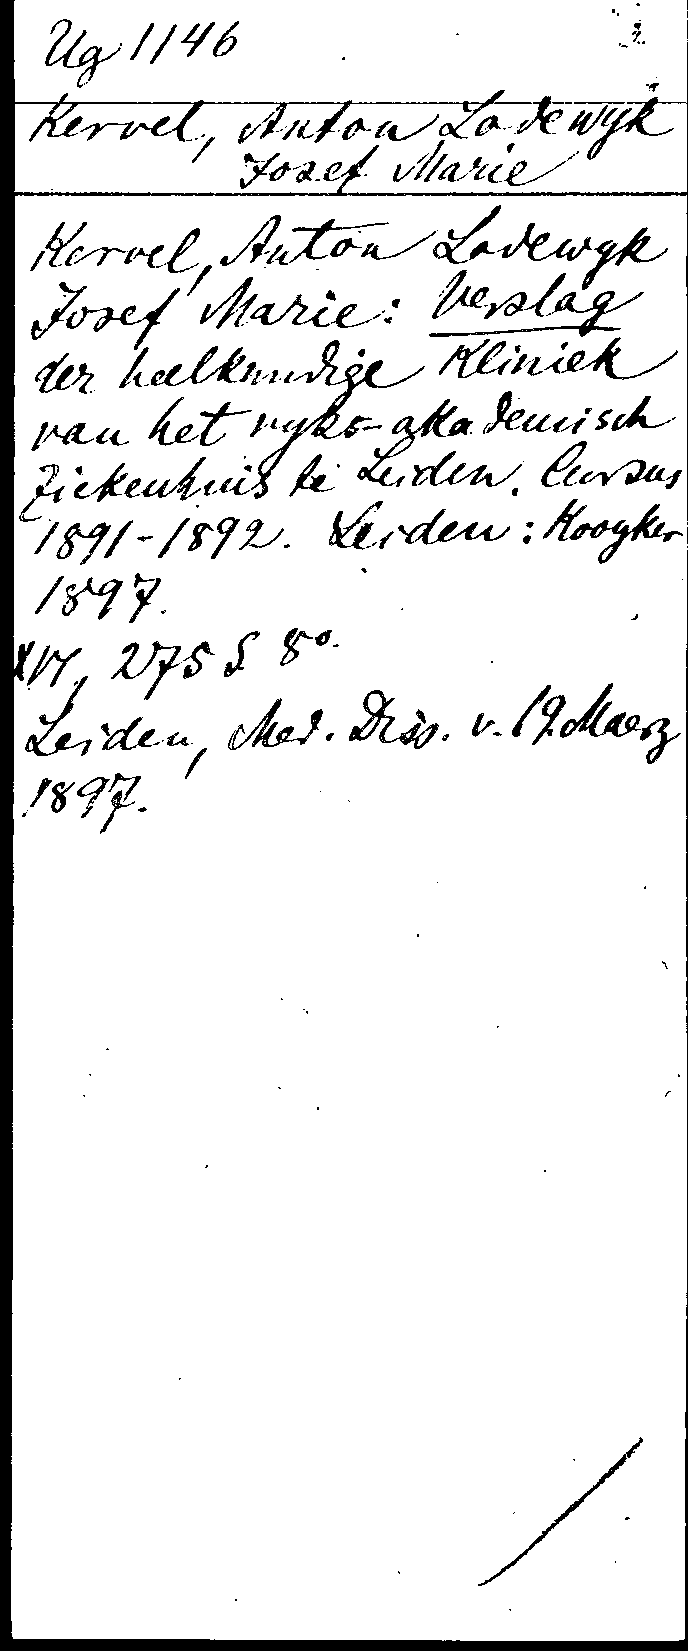 Ug 1146
Kervel, Anton Lodewyk
Josef Marie
Kervel, Anton Lodewyk
Josef Marie: Verslag
der heelkundige Kliniek
van het ryks-akademisch
Ziekenhuis te Leiden. Cursus
1891-1892. Leiden: Kooyker
1897.
XVI, 275 S 8°.
Leiden, Med. Diss. v. 19. Maerz
1897.